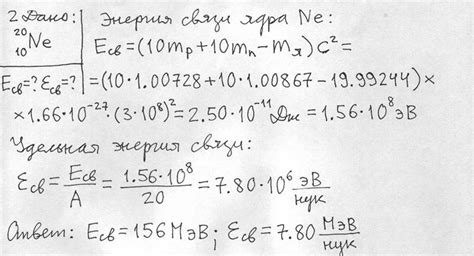 2 Дано: Энергия связи ядра Ne:
²⁰₁₀Ne E_св=(10m_p+10m_n-m_я)c²=
E_св=? Ɛ_св=? =(10·1.00728+10·1.00867-19.99244)×
×1.66·10⁻²⁷·(3·10⁸)²=2.50·10⁻¹¹Дж=1.56·10⁸эВ
Удельная энергия связи:
Ɛ_св=E_св/A=1.56·10⁸/20=7.80·10⁶ эВ/нук
Ответ: E_св=156МэВ; Ɛ_св=7.80 МэВ/нук